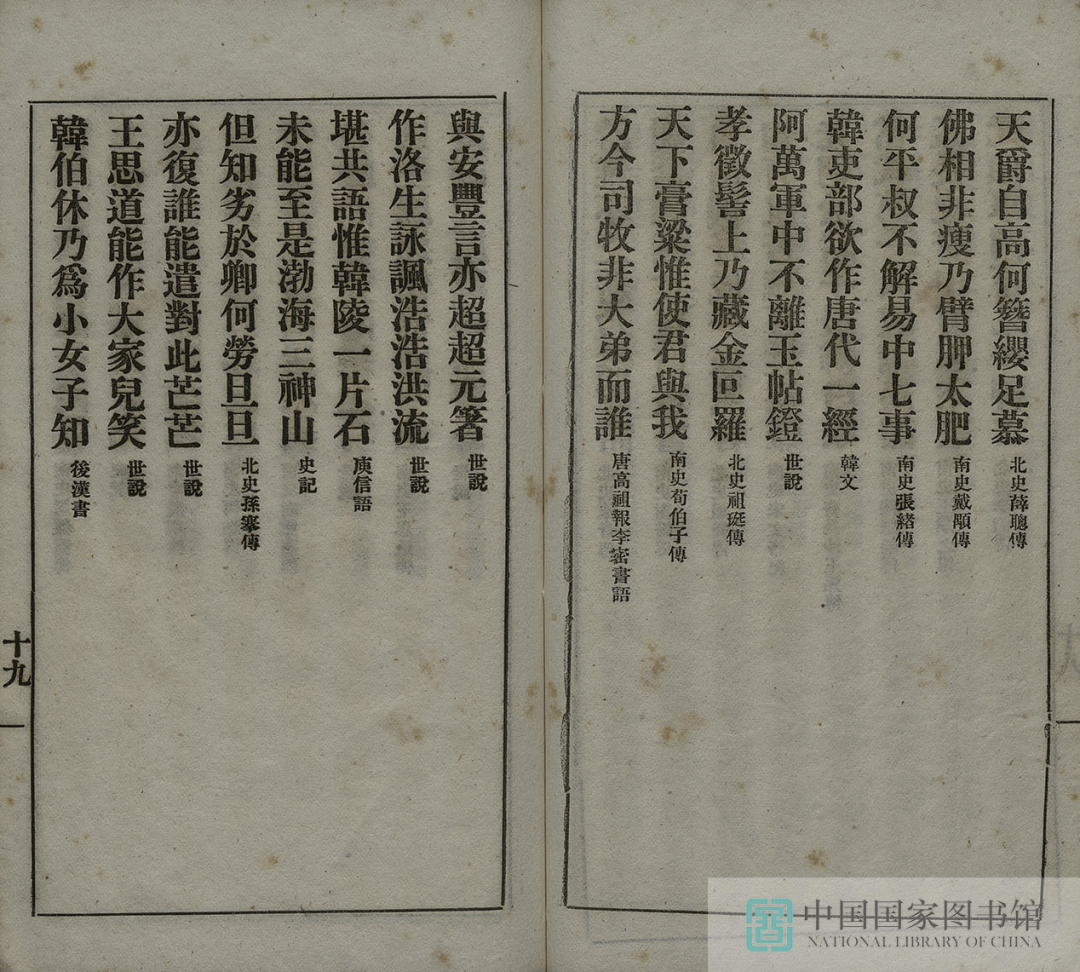 天爵自高何簪纓足慕 北史薛聰傳
佛相非瘦乃臂胛太肥 南史戴顒傳
何平叔不解易中七事 南史張緒傳
韓吏部欲作唐代一經 韓文
阿萬軍中不離玉帖鐙 世說
孝徵髻上乃藏金叵羅 北史祖珽傳
天下膏粱惟使君與我 南史荀伯子傳
方今司牧非大弟而誰 唐高祖報李密書語
與安豐言亦超超元箸 世說
作洛生詠諷浩浩洪流 世說
堪共語惟韓陵一片石 庾信語
未能至是渤海三神山 史記
但知劣於卿何勞旦旦 北史孫搴傳
亦復誰能遣對此芒芒 世說
王思道能作大家兒笑 世說
韓伯休乃爲小女子知 後漢書
十九
中国国家图书馆
NATIONAL LIBRARY OF CHINA